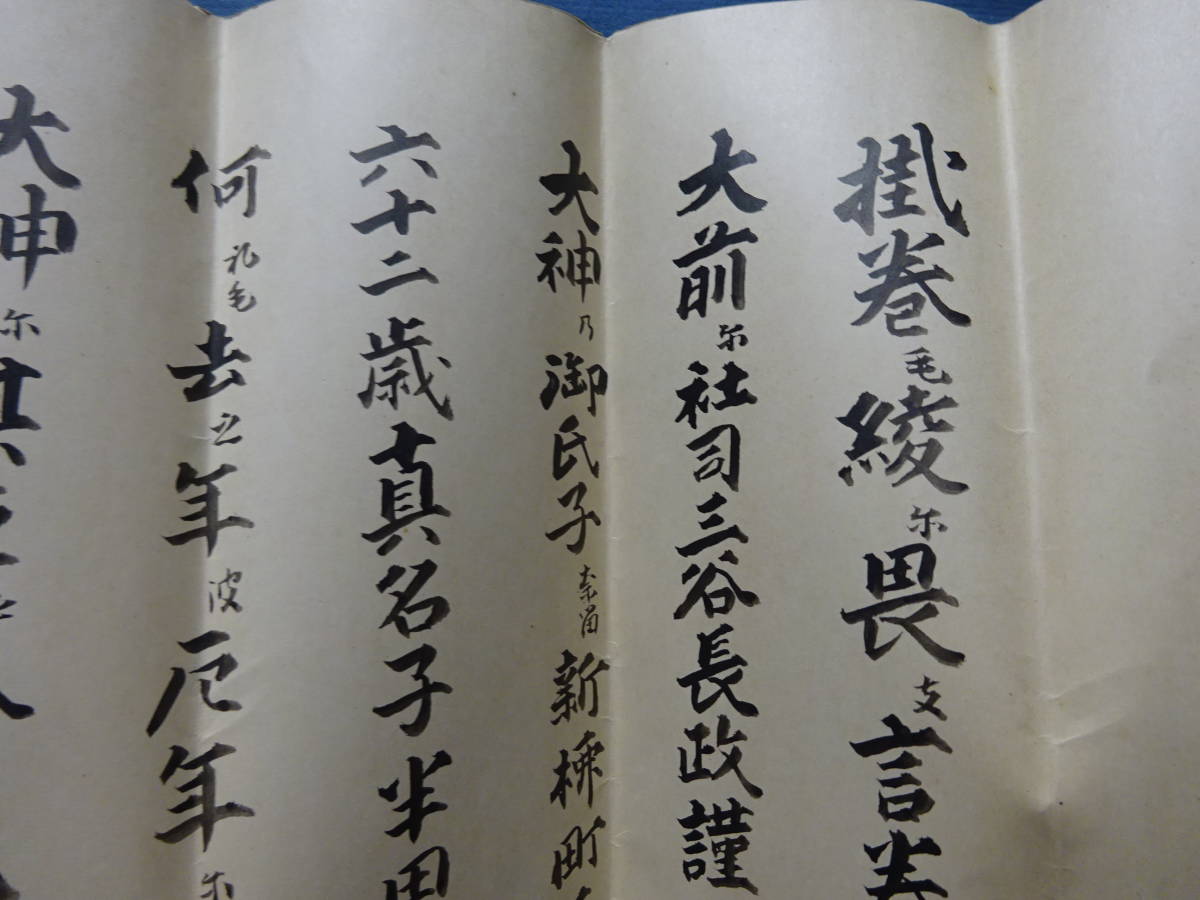 掛巻毛綾尓畏支言巻
大前尓社司三谷長政謹
大神乃御氏子奈留新柳町
六十二歳真名子半田
何礼毛去之年波厄年尓
大神尓